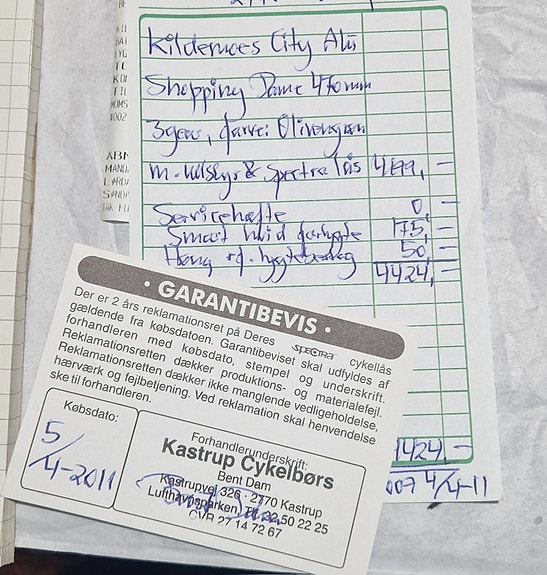 Kildemoes City Alu
Shopping Dame 470mm
3gear, farve: Olivengrøn
m. & Spectra lås 4199,-
Servicehæfte 0,-
Smart hvid forlygte 175,-
50,-
4424,-
· GARANTIBEVIS ·
Der er 2 års reklamationsret på Deres SPECTRA cykellås
gældende fra købsdatoen. Garantibeviset skal udfyldes af
forhandleren med købsdato, stempel og underskrift.
Reklamationsretten dækker produktions- og materialefejl.
Reklamationsretten dækker ikke manglende vedligeholdelse,
hærværk og fejlbetjening. Ved reklamation skal henvendelse
ske til forhandleren.
Købsdato:
5/4-2011
Forhandlerunderskrift:
Kastrup Cykelbørs
Bent Dam
Kastrupvej 326 · 2770 Kastrup
Lufthavnsparken, Tlf. 32 50 22 25
CVR 27 14 72 67
Bent Dam
1424,-
007 4/4-11
ABN
MAND
LØRDA
SØNDA